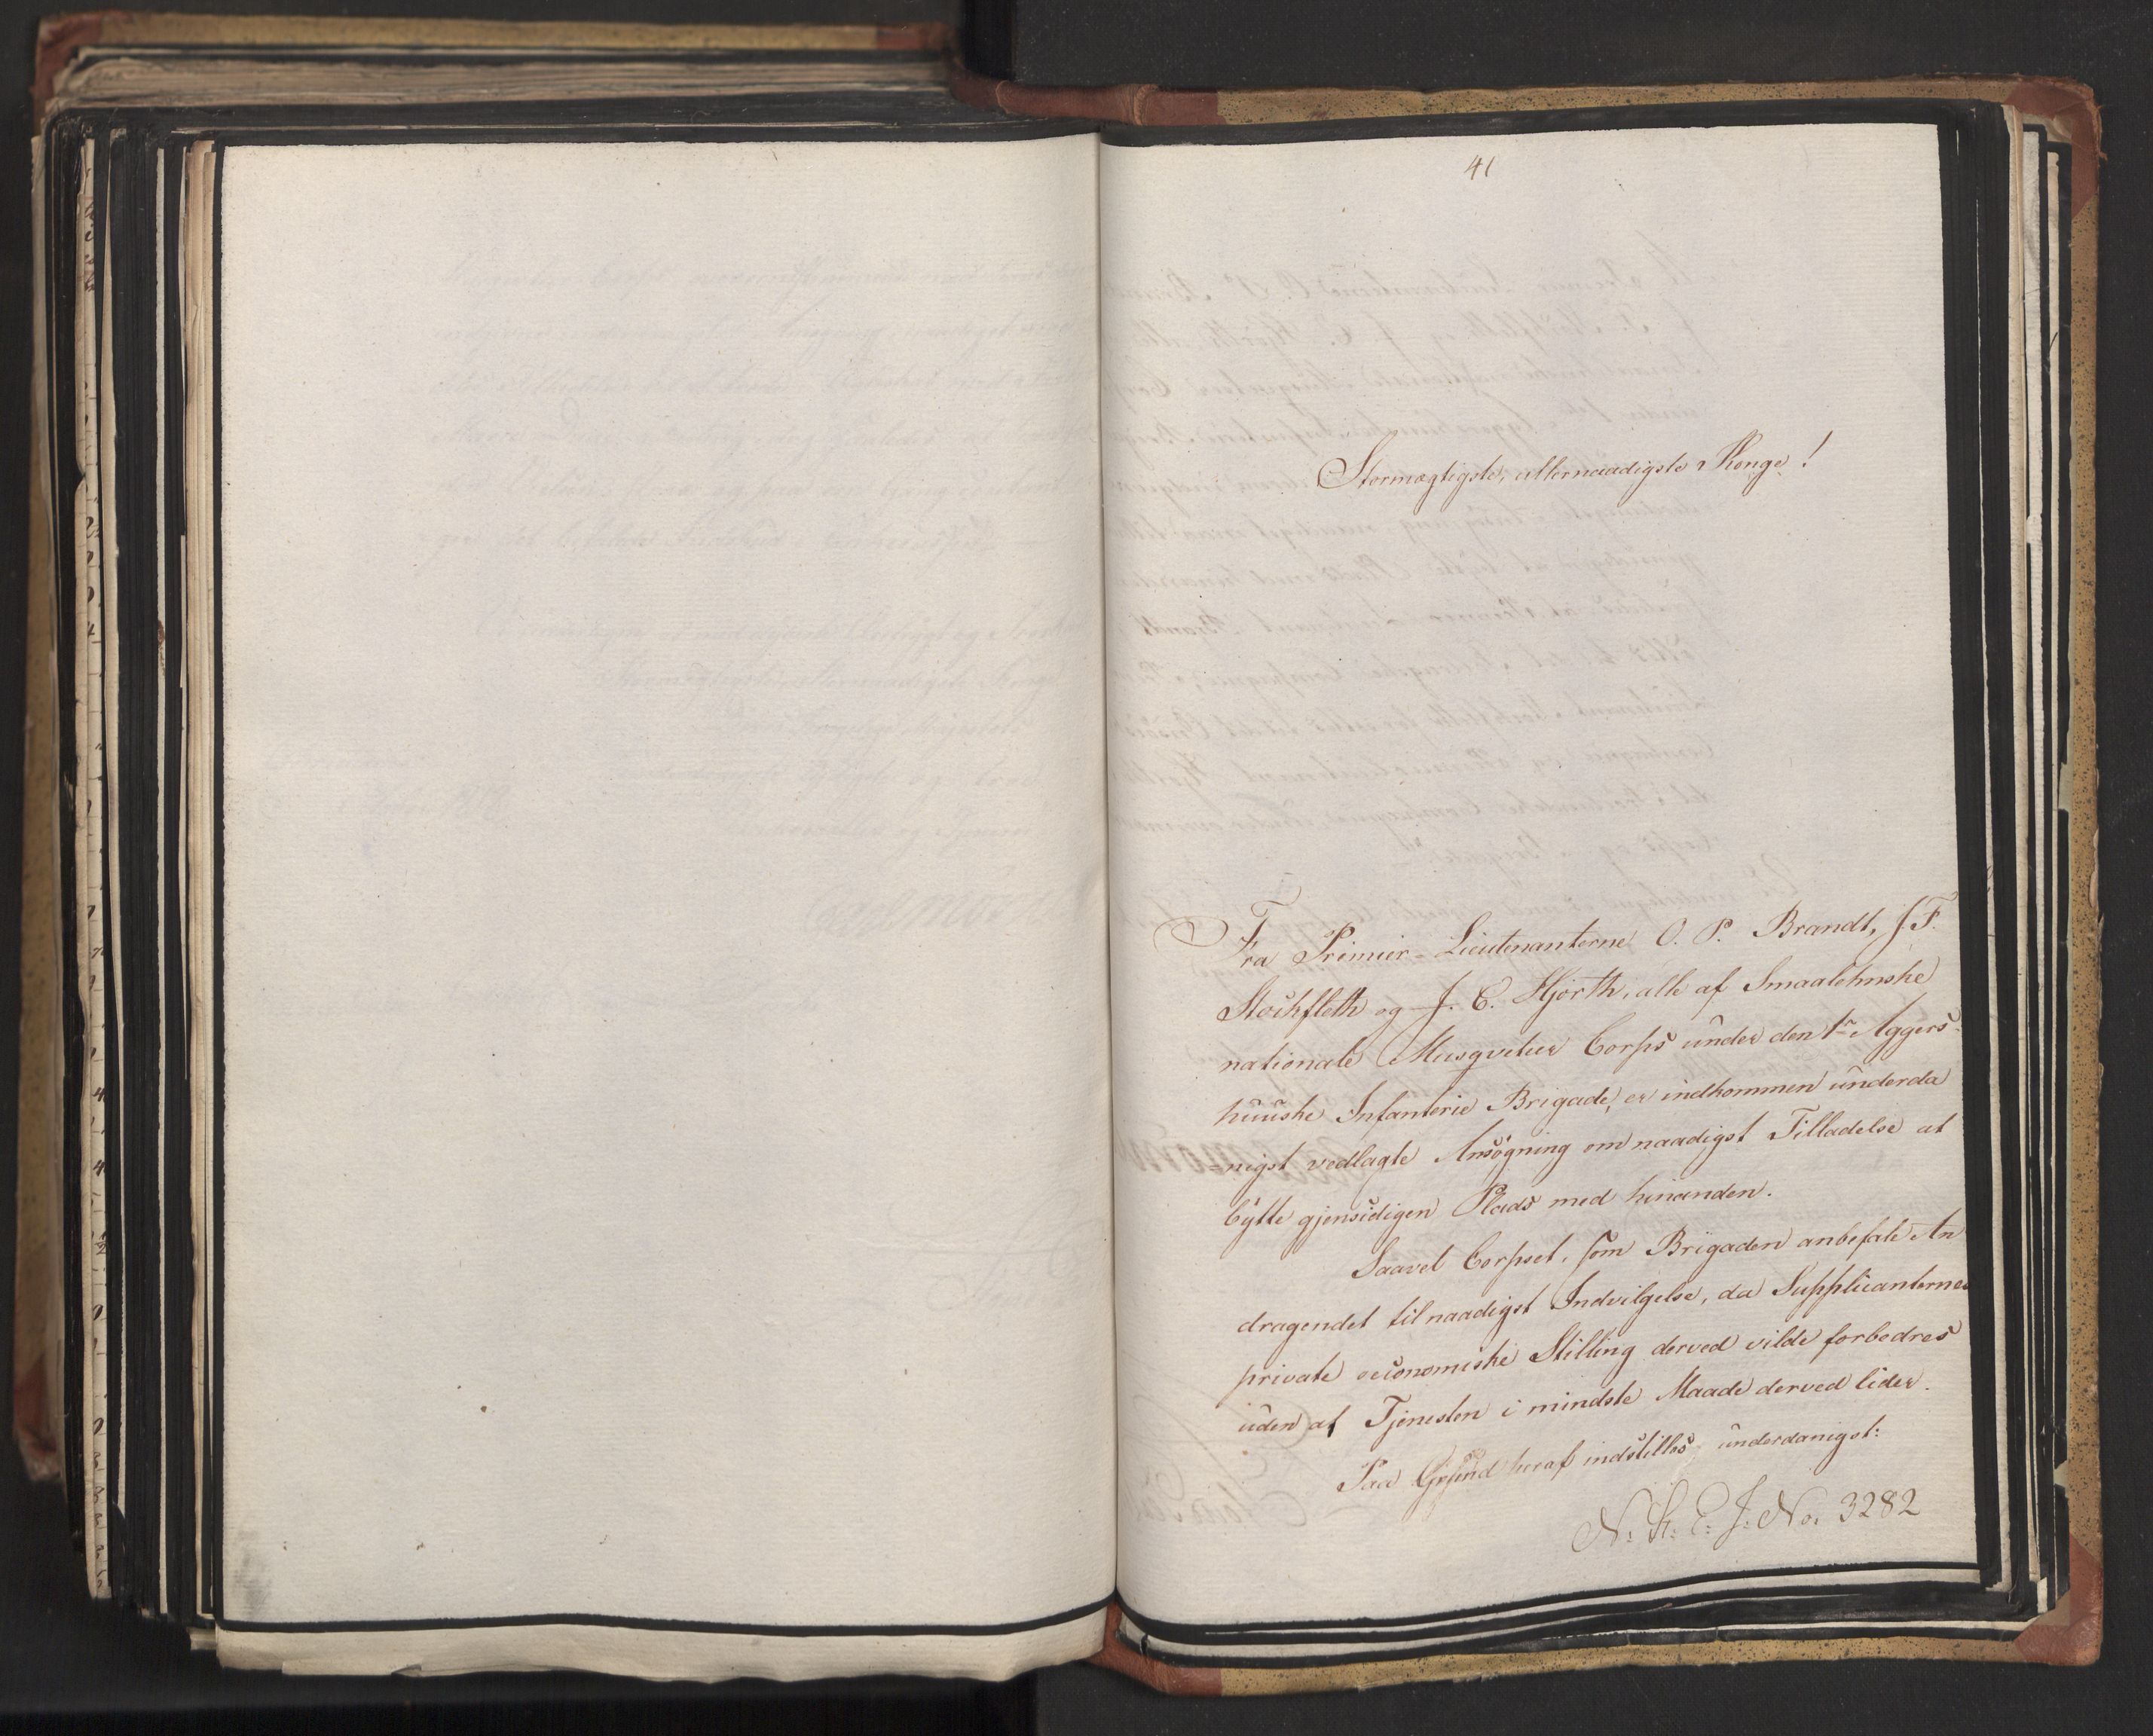 41
Stormægtigste, allernaadigste Konge!
Fra Premier-Lieutenanterne O. P. Brandt, J. F.
Stockfleth og J. C. Hjorth, alle af Smaalehnske
nationale Musqveteer Corps under den 1ste Aggers-
huuske Infanterie Brigade, er indkommen underda
-nigst vedlagte Ansøgning om naadigst Tilladelse at
bytte gjensidigen Plads med hinanden.
Saavel Corpset, som Brigaden anbefale An
dragendet til naadigst Indvilgelse, da Supplicanternes
private oeconomiske Stilling derved vilde forbedres
uden at Tjenesten i mindste Maade derved lider.
Paa Grund heraf indstilles underdanigst:
N: K: E: J: No. 3282